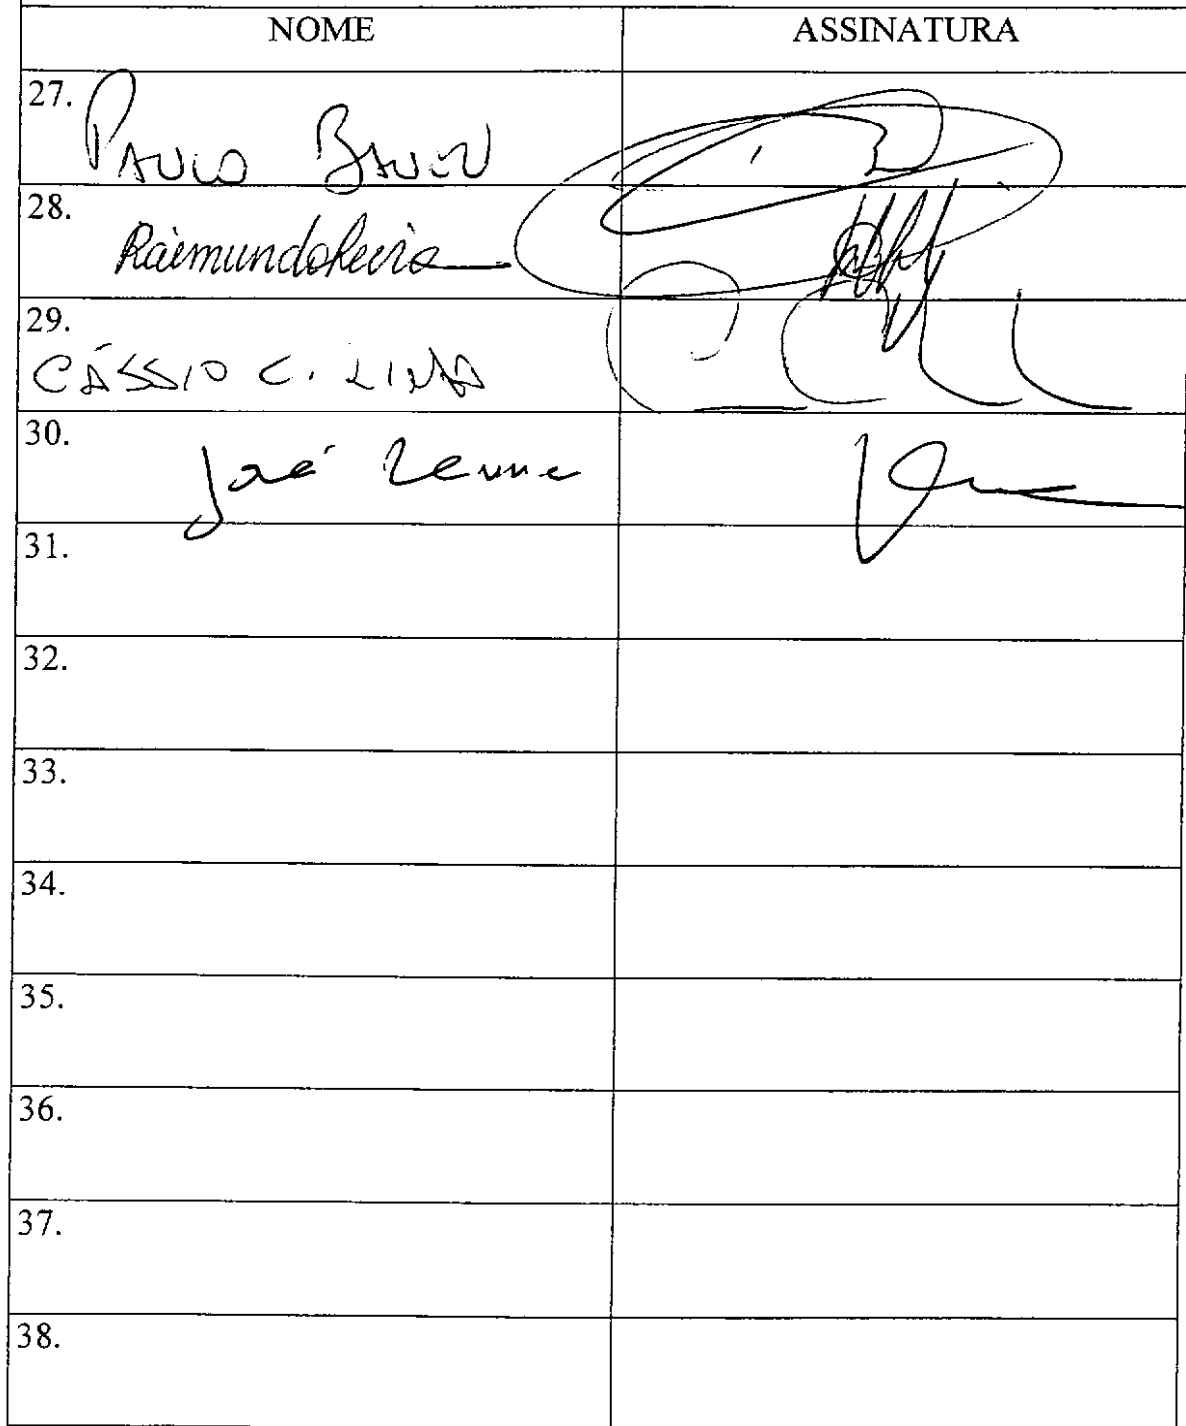 NOME ASSINATURA
27. PAULO BAUER
28. Raimundo
29.
CÁSSIO C. LIMA
30. José
31.
32.
33.
34.
35.
36.
37.
38.